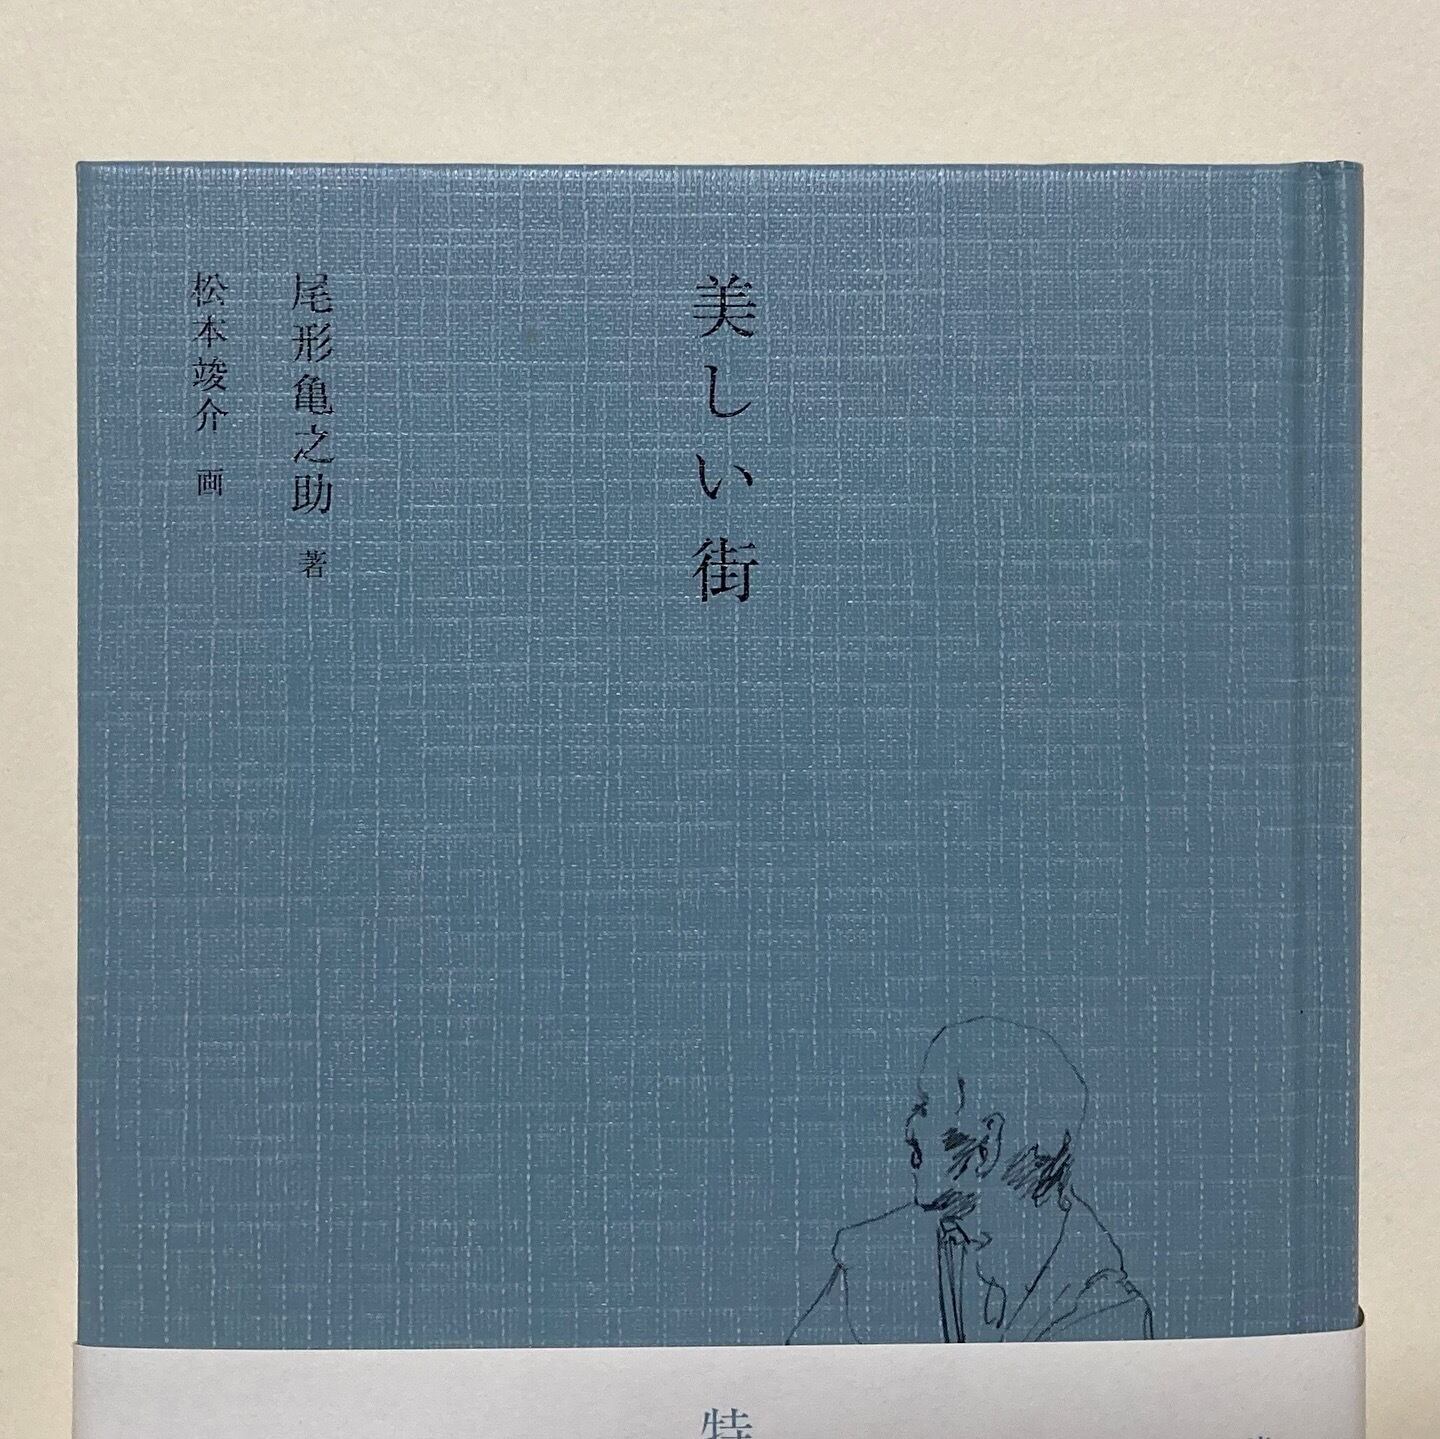 美しい街
尾形亀之助 著
松本竣介 画
特